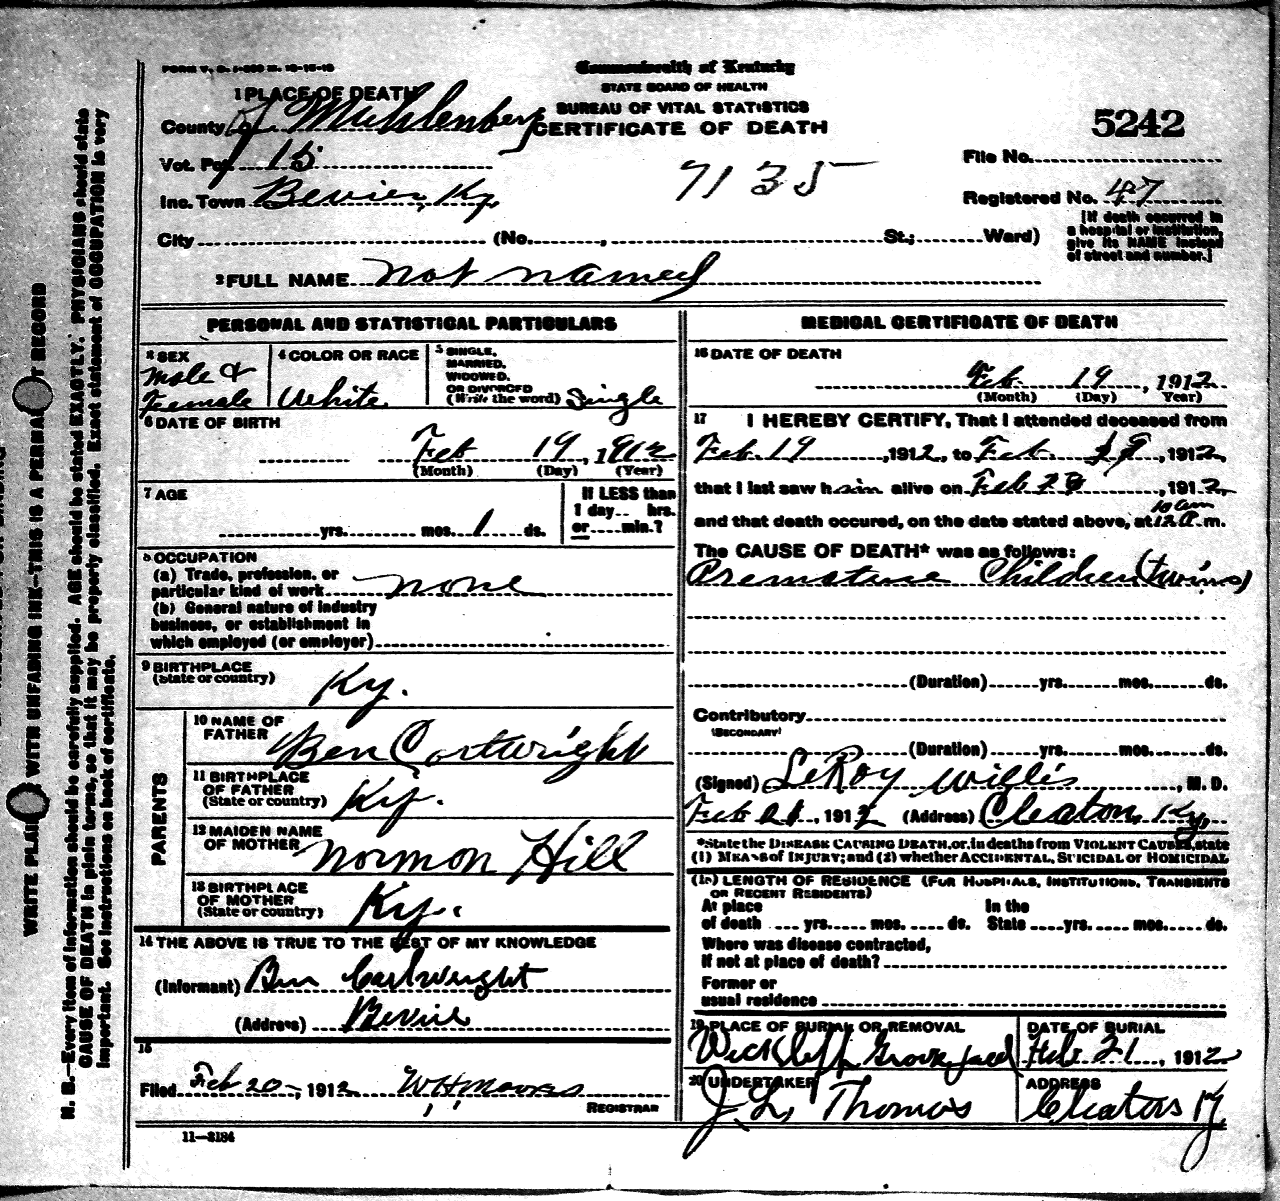 FORM V. S. 1-
Commonwealth of Kentucky
STATE BOARD OF HEALTH
BUREAU OF VITAL STATISTICS
CERTIFICATE OF DEATH
5242
1 PLACE OF DEATH
County of Muhlenberg
Vot. Pct 15
Inc. Town Bevier, Ky.
7135
File No.
Registered No. 47
[If death occurred in
a hospital or institution,
give its NAME instead
of street and number.]
City (No. , St.; Ward)
2 FULL NAME not named
PERSONAL AND STATISTICAL PARTICULARS
3 SEX
Male &
Female
4 COLOR OR RACE
White
5 SINGLE,
MARRIED,
WIDOWED,
OR DIVORCED
(Write the word) Single
6 DATE OF BIRTH
Feb 19, 1912
(Month) (Day) (Year)
7 AGE
yrs. mos. 1 ds.
If LESS than
1 day.. hrs.
or min.?
8 OCCUPATION
(a) Trade, profession, or
particular kind of work none
(b) General nature of industry
business, or establishment in
which employed (or employer)
9 BIRTHPLACE
(State or country) Ky.
PARENTS
10 NAME OF
FATHER Ben Cartwright
11 BIRTHPLACE
OF FATHER
(State or country) Ky.
12 MAIDEN NAME
OF MOTHER Normon Hill
13 BIRTHPLACE
OF MOTHER
(State or country) Ky.
14 THE ABOVE IS TRUE TO THE BEST OF MY KNOWLEDGE
(Informant) Ben Cartwright
(Address) Bevier
15
Filed Feb 20-, 1912
REGISTRAR
11-3184
MEDICAL CERTIFICATE OF DEATH
16 DATE OF DEATH
Feb 19, 1912
(Month) (Day) (Year)
17 I HEREBY CERTIFY, That I attended deceased from
Feb. 19, 1912, to Feb. , 1912,
that I last saw h alive on Feb , 1912,
10 am
and that death occured, on the date stated above, at 12 a m.
The CAUSE OF DEATH* was as follows:
Premature Children (twins)
(Duration) yrs. mos. ds.
Contributory
(SECONDARY)
(Duration) yrs. mos. ds.
(Signed) LeRoy Willis, M. D.
Feb 21, 1912 (Address) Cleaton, Ky.
*State the DISEASE CAUSING DEATH, or, in deaths from VIOLENT CAUSES, state
(1) MEANS of INJURY; and (2) whether ACCIDENTAL, SUICIDAL or HOMICIDAL
(18) LENGTH OF RESIDENCE (FOR HOSPITALS, INSTITUTIONS, TRANSIENTS
OR RECENT RESIDENTS)
At place In the
of death yrs. mos. ds. State yrs. mos. ds.
Where was disease contracted,
if not at place of death?
Former or
usual residence
19 PLACE OF BURIAL OR REMOVAL
Wickliff Grove yard
DATE OF BURIAL
Feb. 21, 1912
20 UNDERTAKER
J. L. Thomas
ADDRESS
Cleaton Ky
WRITE PLAINLY WITH UNFADING INK-THIS IS A PERMANENT RECORD
N. B.-Every item of information should be carefully supplied. AGE should be stated EXACTLY. PHYSICIANS should state
CAUSE OF DEATH in plain terms, so that it may be properly classified. Exact statement of OCCUPATION is very
important. See instructions on back of certificate.